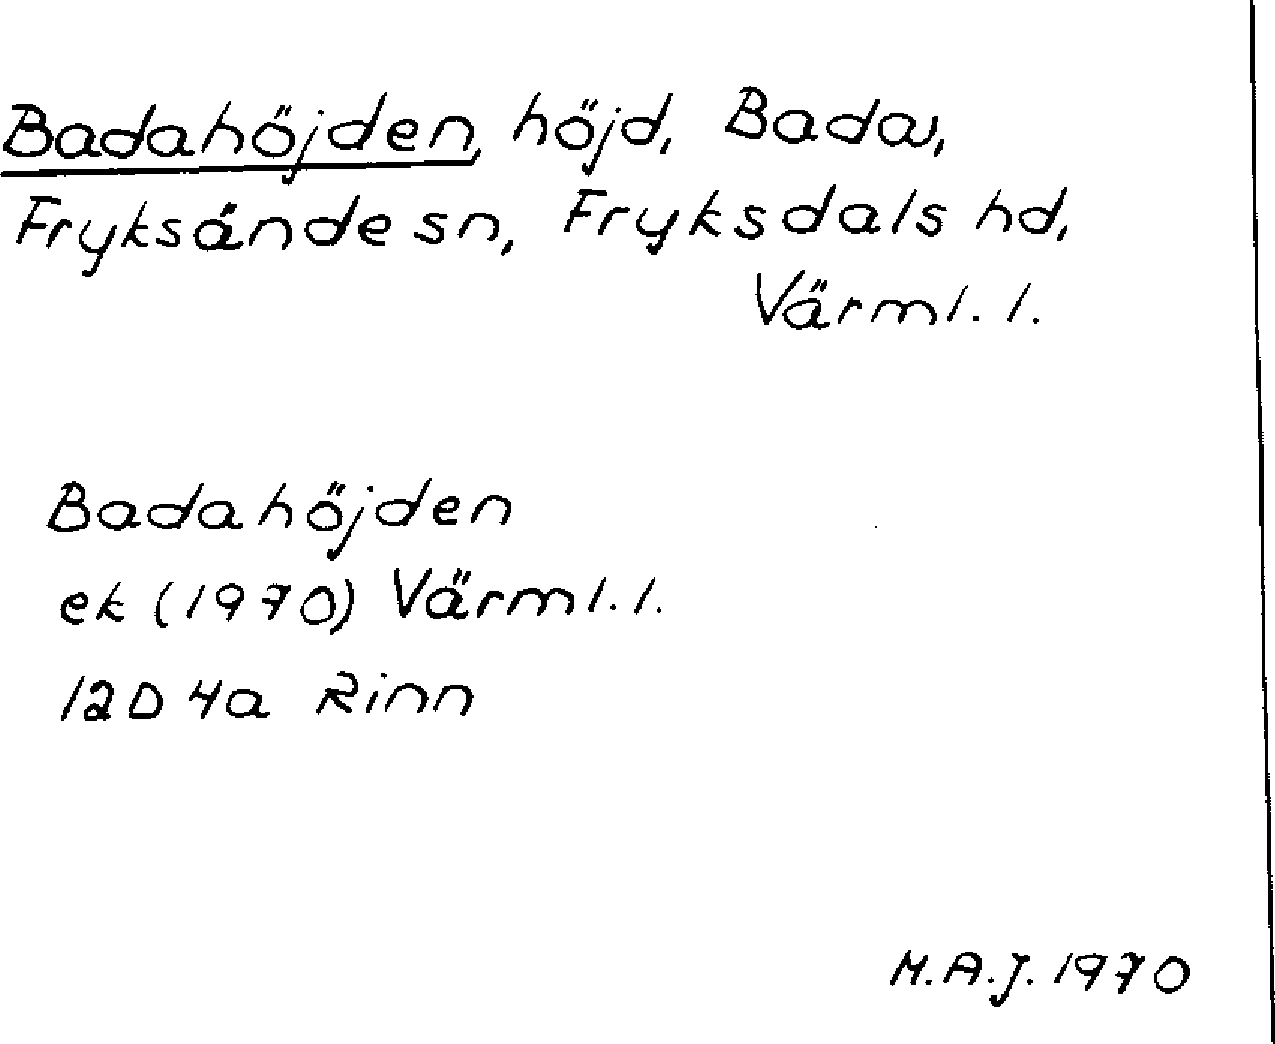 Badahöjden, höjd, Bada,
Fryksände sn, Fryksdals hd,
Värml. l.
Badahöjden
ek (1970) Värml. l.
12D 4a Rinn
M.A.J. 1970